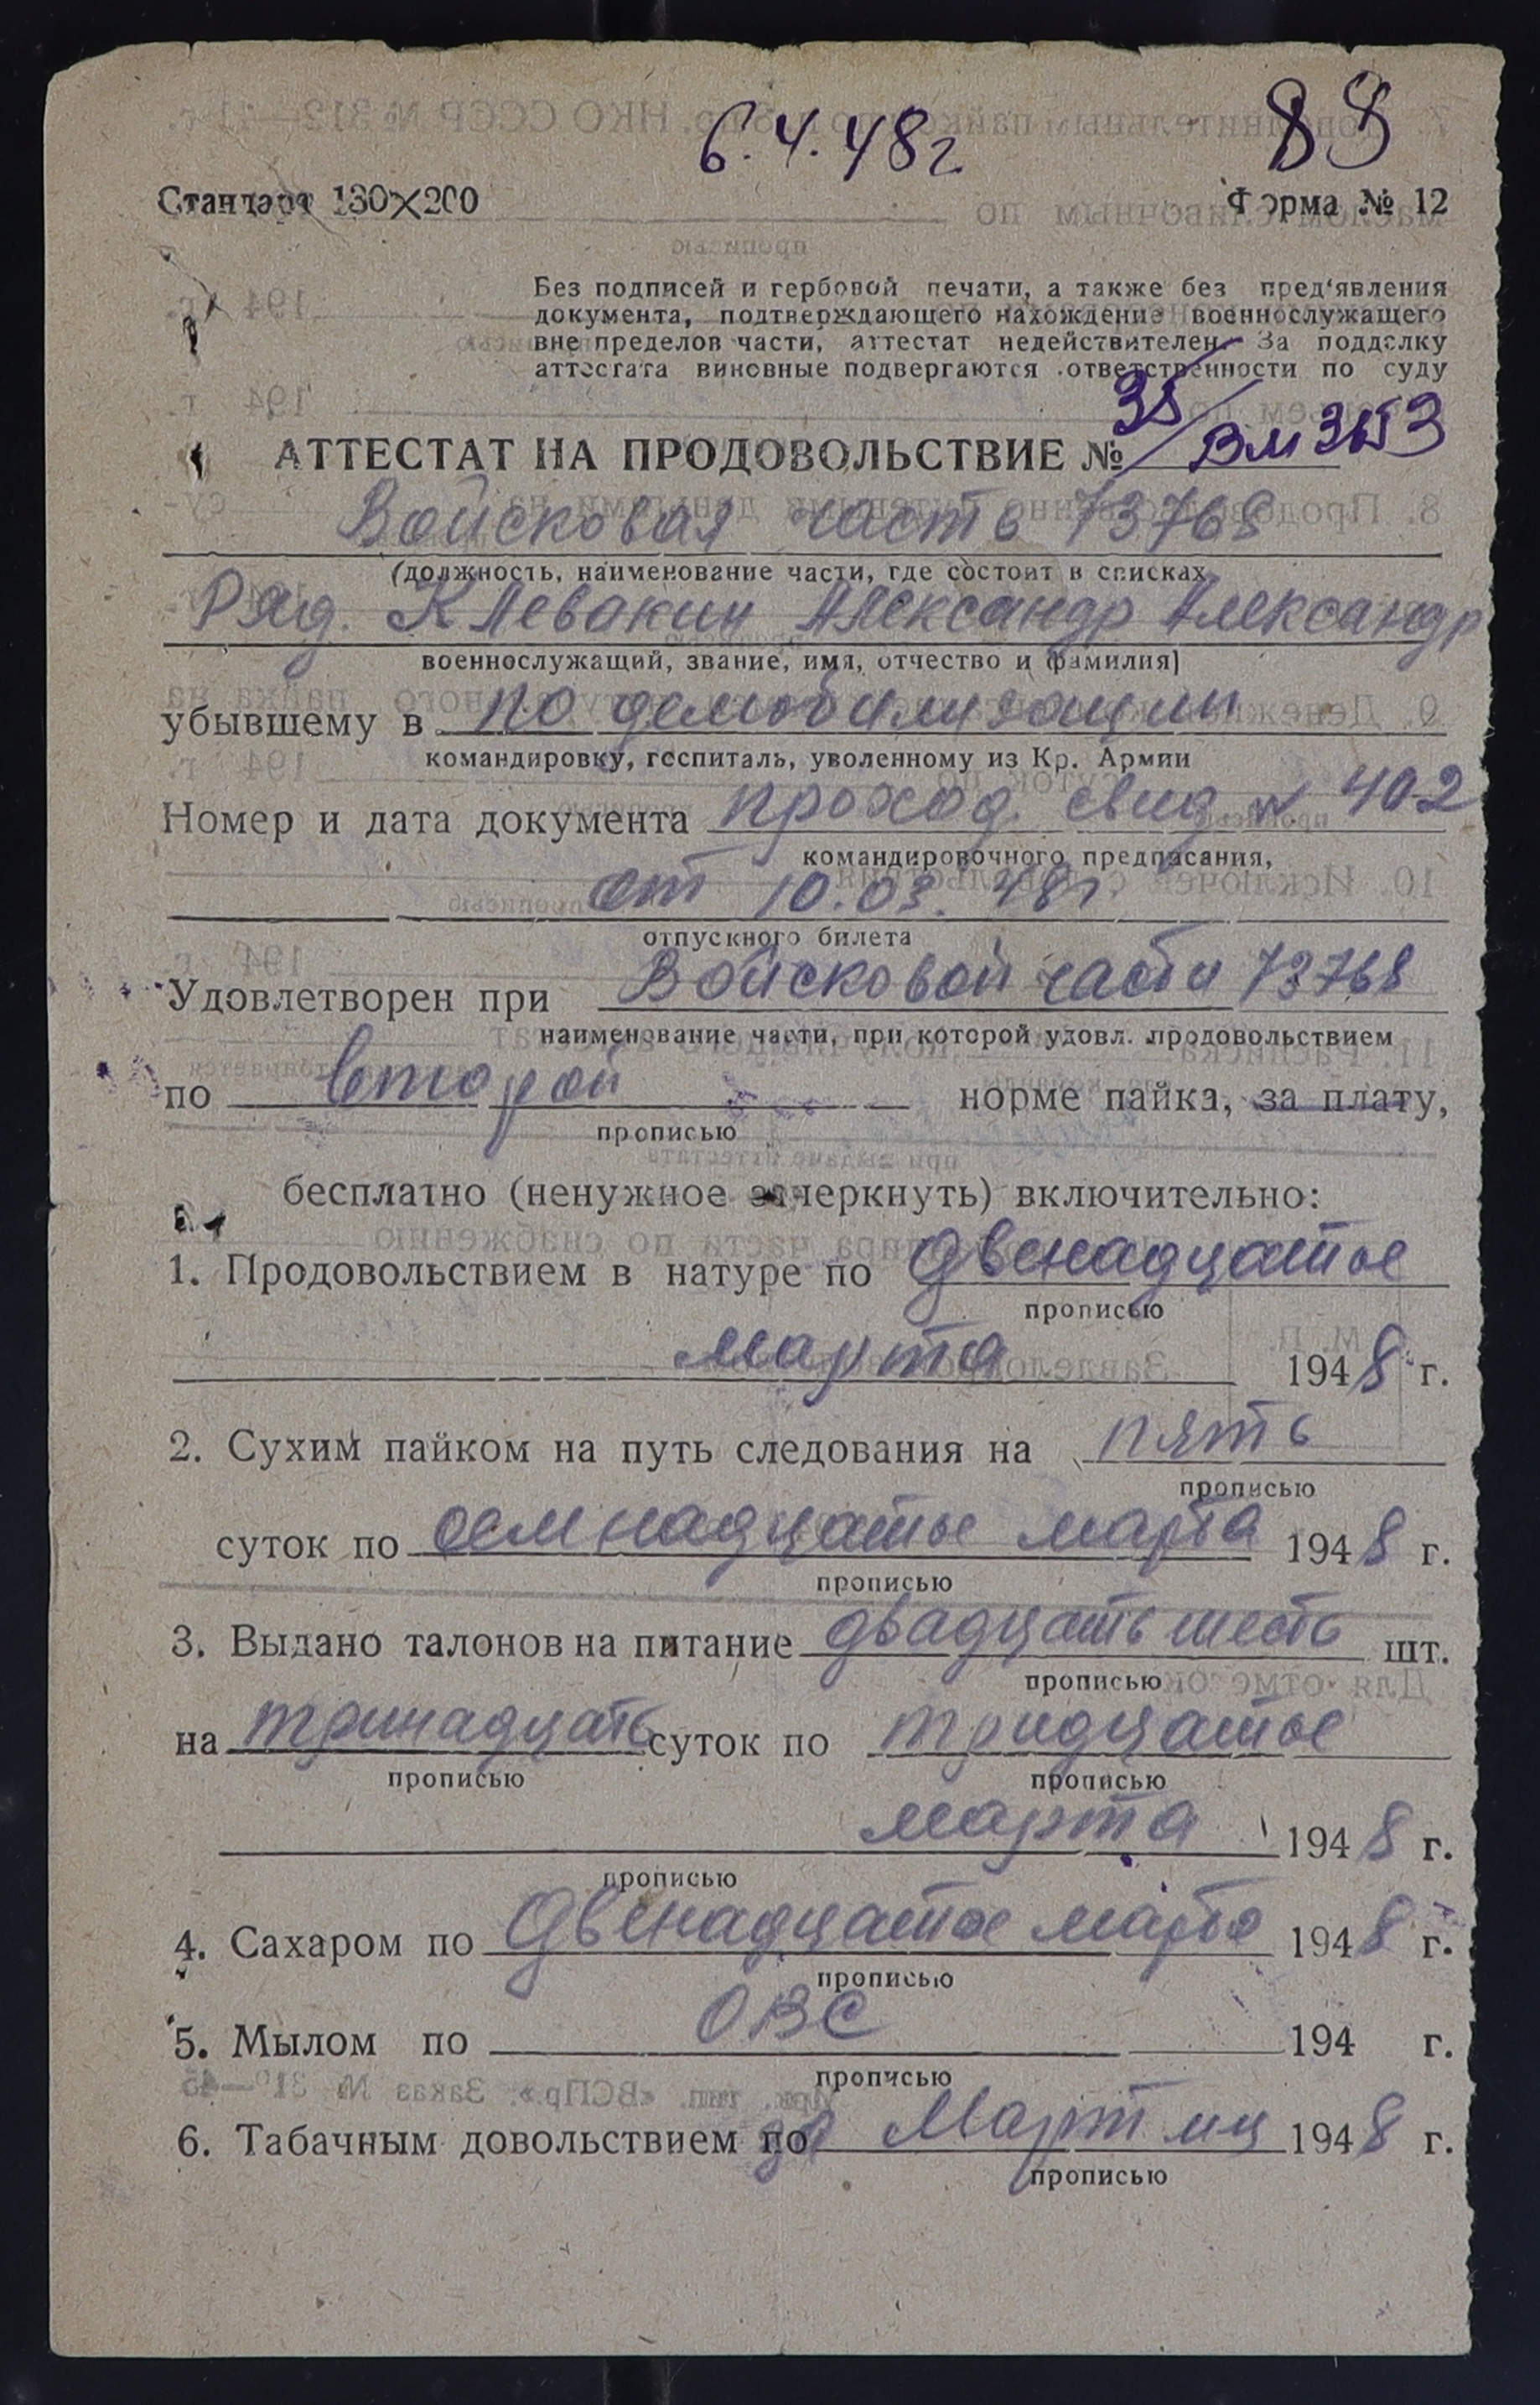 6.4.48г 89
Стандарт 130×200 Форма № 12
Без подписей и гербовой печати, а также без пред'явления
документа, подтверждающего нахождение военнослужащего
вне пределов части, аттестат недействителен. За подделку
аттестата виновные подвергаются ответственности по суду
АТТЕСТАТ НА ПРОДОВОЛЬСТВИЕ №
Войсковая часть 73768
(должность, наименование части, где состоит в списках,
Ряд. Клевакин Александр Александр
военнослужащий, звание, имя, отчество и фамилия)
убывшему в по демобилизации
командировку, госпиталь, уволенному из Кр. Армии
Номер и дата документа проход. свид № 402
командировочного предписания,
от 10.03.48г
отпускного билета
Удовлетворен при Войсковой части 73768
наименование части, при которой удовл. продовольствием
по второй норме пайка, за плату,
прописью
бесплатно (ненужное зачеркнуть) включительно:
1. Продовольствием в натуре по двенадцатое
прописью
марта 1948 г.
2. Сухим пайком на путь следования на пять
прописью
суток по семнадцатое марта 1948 г.
прописью
3. Выдано талонов на питание двадцать шесть шт.
прописью
на тринадцать суток по тридцатое
прописью прописью
марта 1948 г.
прописью
4. Сахаром по двенадцатое марта 1948 г.
прописью
5. Мылом по ОВС 194 г.
прописью
6. Табачным довольствием по за Март м-ц 1948 г.
прописью